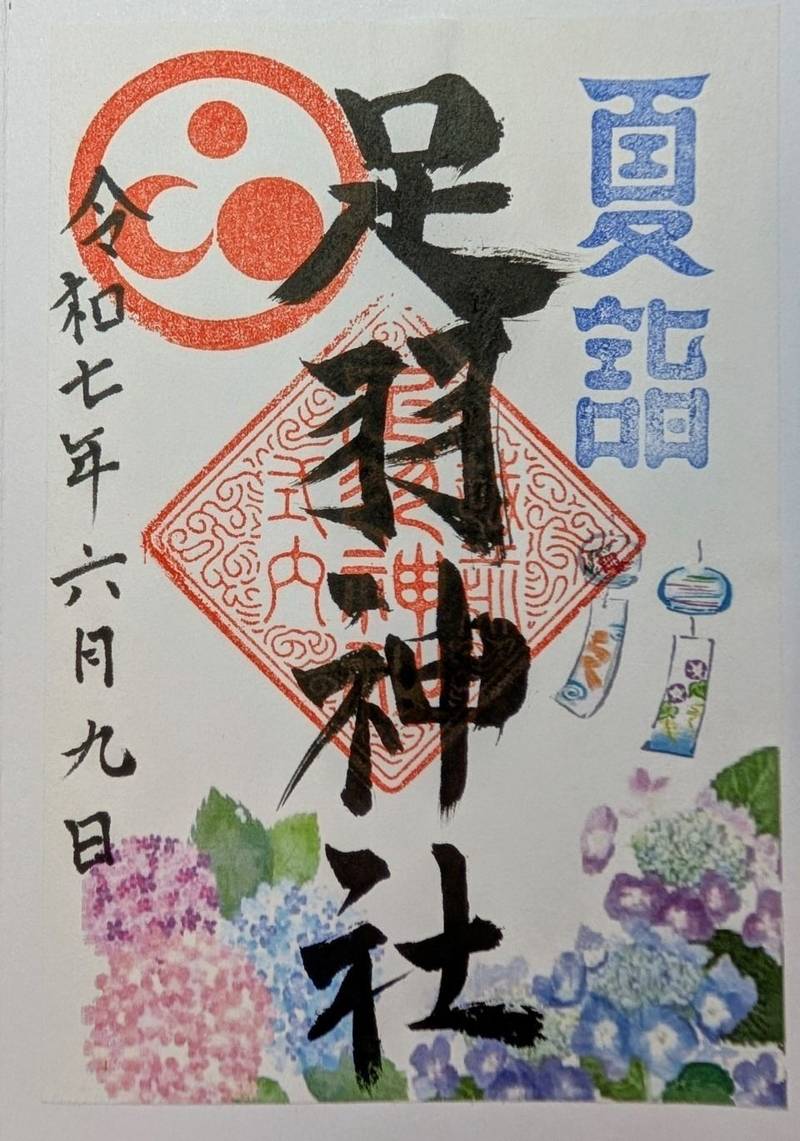 夏詣
足羽神社
式内
令和七年六月九日